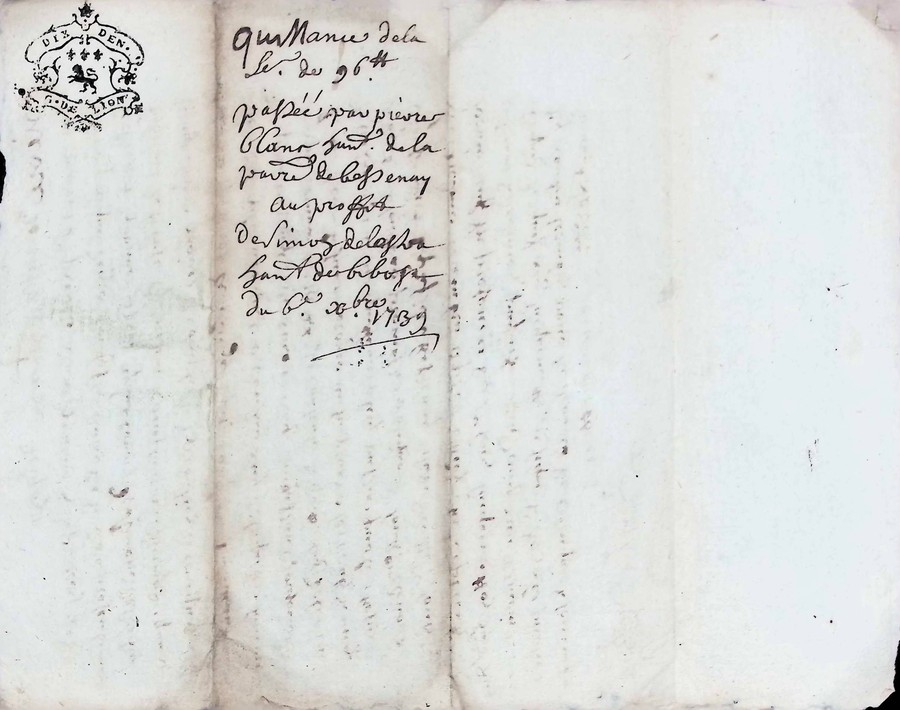 DIX DEN.
G. DE LION
quittance dela
Se.e de 96 tt
passéé par pierre
blanc han.t dela
parr.e de bessenay
au proffit
De Simoz delastra
han.t de bibost
du 6.e xbre 1739